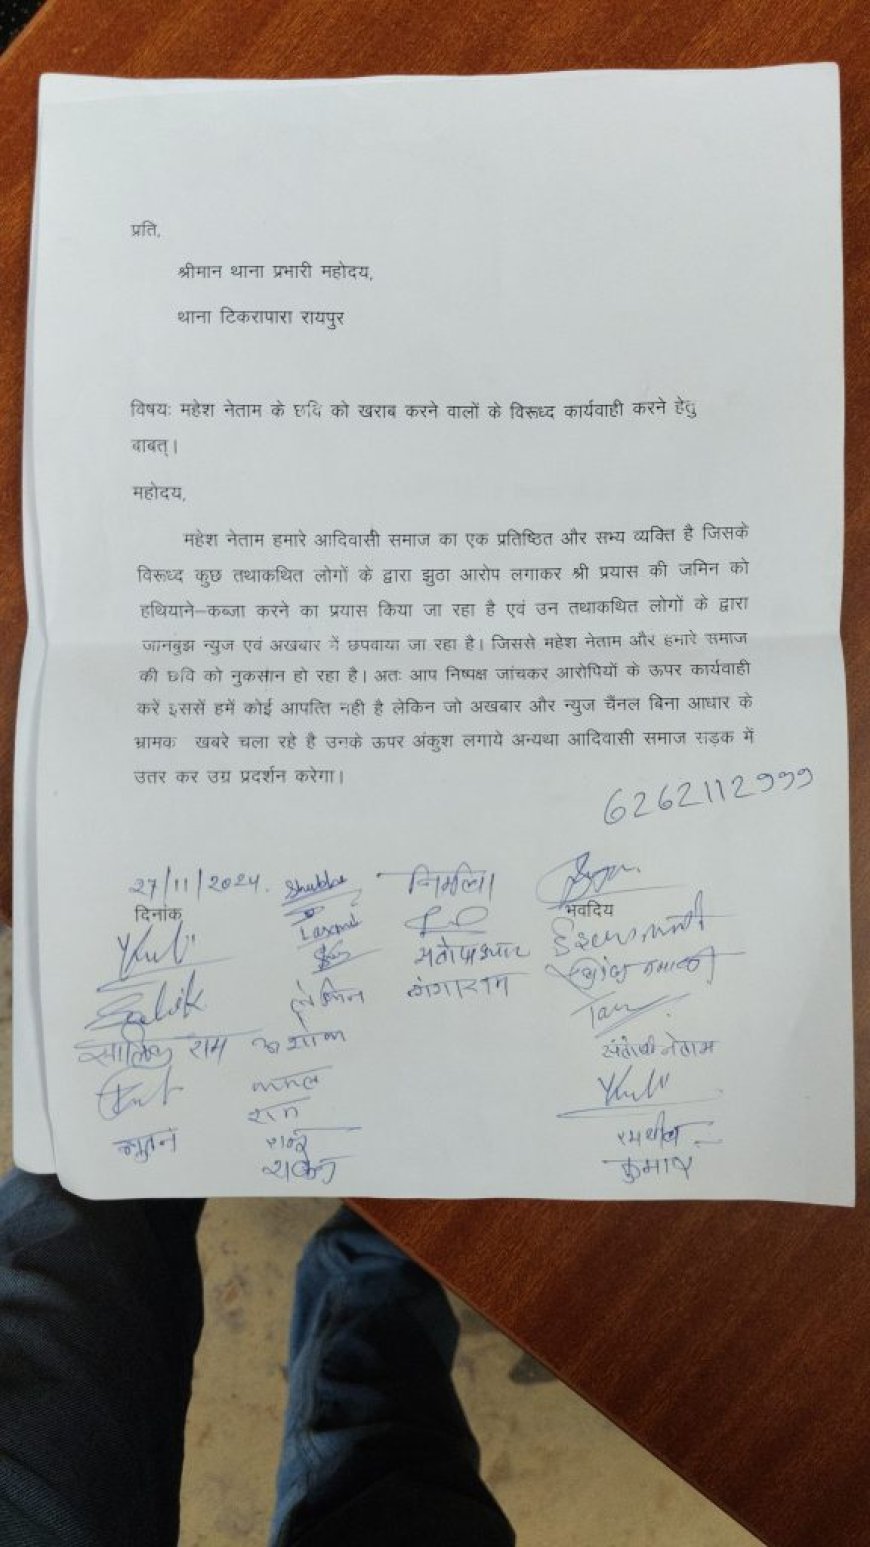 प्रति,
श्रीमान थाना प्रभारी महोदय,
थाना टिकरापारा रायपुर
विषयः महेश नेताम के छवि को खराब करने वालों के विरूध्द कार्यवाही करने हेतु
बाबत्।
महोदय,
महेश नेताम हमारे आदिवासी समाज का एक प्रतिष्ठित और सभ्य व्यक्ति है जिसके
विरूध्द कुछ तथाकथित लोगों के द्वारा झुठा आरोप लगाकर श्री प्रयास की जमिन को
हथियाने–कब्जा करने का प्रयास किया जा रहा है एवं उन तथाकथित लोगों के द्वारा
जानबुझ न्युज एवं अखबार में छपवाया जा रहा है। जिससे महेश नेताम और हमारे समाज
की छवि को नुकसान हो रहा है। अतः आप निष्पक्ष जांचकर आरोपियों के ऊपर कार्यवाही
करें इससें हमें कोई आपत्ति नही है लेकिन जो अखबार और न्युज चैंनल बिना आधार के
भ्रामक खबरे चला रहे है उनके ऊपर अंकुश लगाये अन्यथा आदिवासी समाज सड़क में
उतर कर उग्र प्रदर्शन करेगा।
6262112999
27/11/2024.
दिनांक
भवदिय
गंगाराम
सालिक राम
अशोक
संतोषी नेताम
कमल
राम
नुतन
कुमार